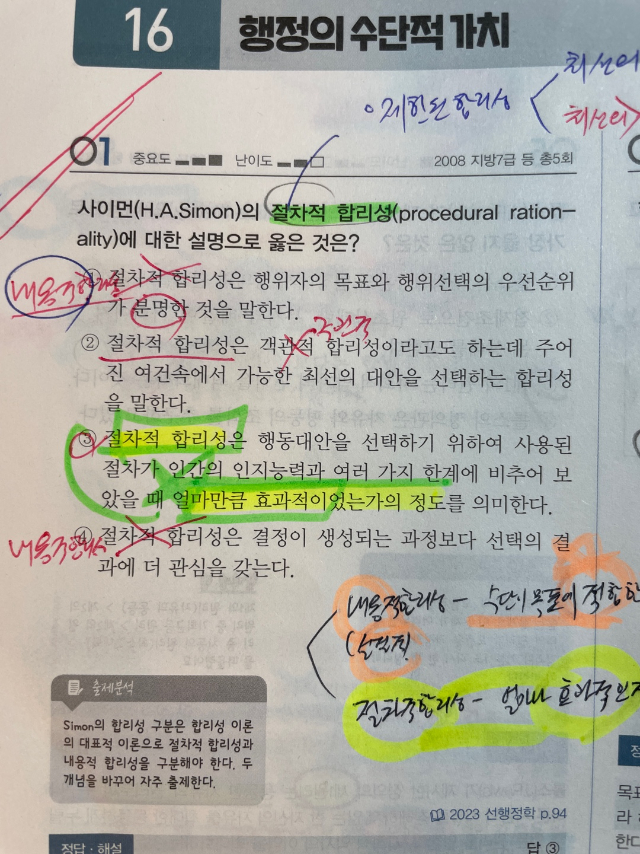 16 행정의 수단적 가치
제한된 합리성
최선의
최선의
01 중요도 난이도 2008 지방7급 등 총5회
사이먼(H.A.Simon)의 절차적 합리성(procedural ration-
ality)에 대한 설명으로 옳은 것은?
내용적합리성
① 절차적 합리성은 행위자의 목표와 행위선택의 우선순위
가 분명한 것을 말한다.
주관적
② 절차적 합리성은 객관적 합리성이라고도 하는데 주어
진 여건속에서 가능한 최선의 대안을 선택하는 합리성
을 말한다.
③ 절차적 합리성은 행동대안을 선택하기 위하여 사용된
절차가 인간의 인지능력과 여러 가지 한계에 비추어 보
았을 때 얼마만큼 효과적이었는가의 정도를 의미한다.
내용적합리성
④ 절차적 합리성은 결정이 생성되는 과정보다 선택의 결
과에 더 관심을 갖는다.
내용적합리성 - 수단이 목표에 적합한
(실질적
절차적합리성 - 얼마나 효과적인지
출제분석
Simon의 합리성 구분은 합리성 이론
의 대표적 이론으로 절차적 합리성과
내용적 합리성을 구분해야 한다. 두
개념을 바꾸어 자주 출제한다.
2023 선행정학 p.94
정답·해설 답 ③
정
목표
라
한다